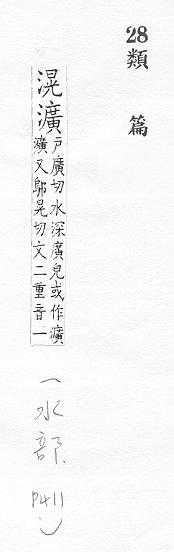 28
類篇
滉瀇戶廣切水深廣皃或作瀇
瀇又鄔晃切文二重音一
(水部 P411)